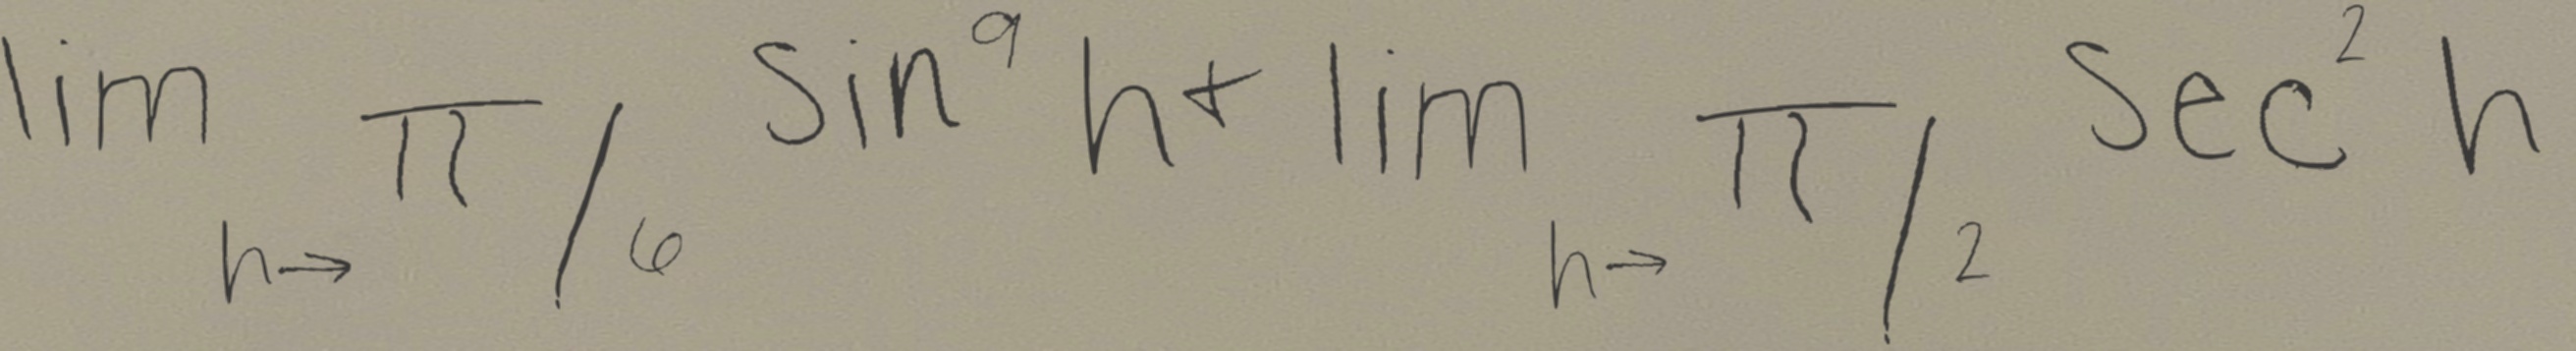 \lim_{h \to \pi/6} \sin^9 h + \lim_{h \to \pi/2} \sec^2 h